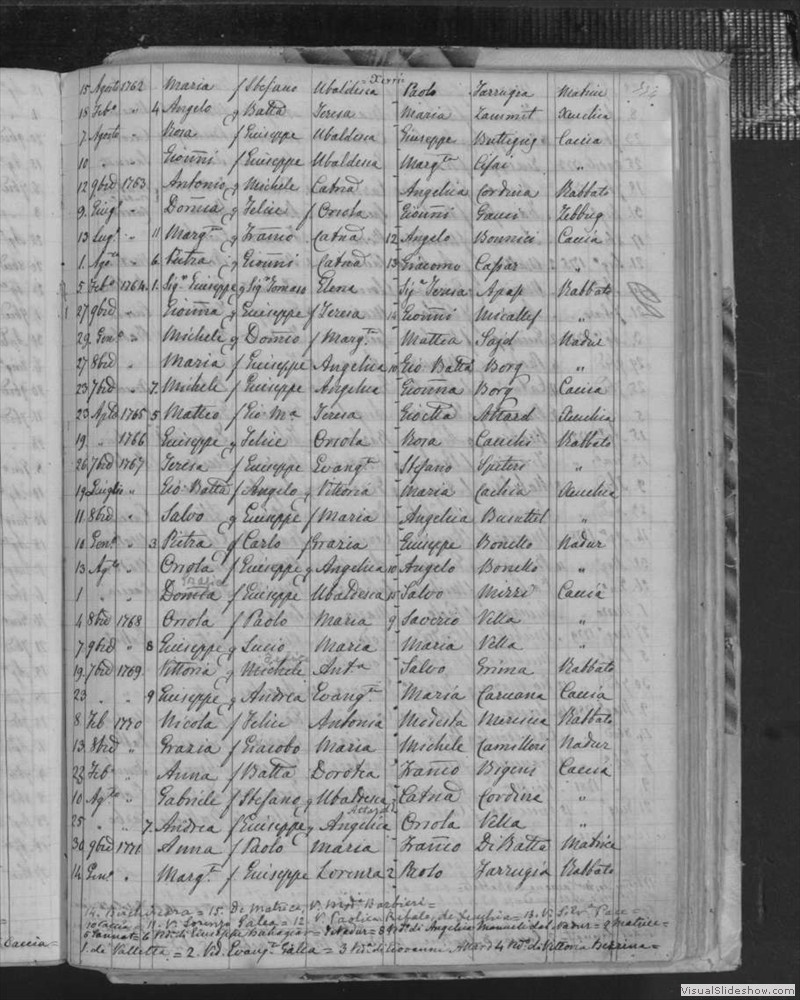 Xxviii
15 Agosto 1762 Maria f Stefano Ubaldesca Paolo Farrugia Matrice
18 Feb.º " 4 Angelo g Batta Teresa Maria Zammit Xeuchia
7 Agosto " Rosa f Giuseppe Ubaldesa Giuseppe Buttigieg Caccia
10 " " Gionñi f Giuseppe Ubaldesca Marg.ta Cifai "
12 9bre 1763 Antonio g Michele Catnã Angelica Cordina Rabbato
9 Giug.º " Domca g Felice f Orsola Gionñi Gauci Zebbug
13 Lug.º " 11 Marg.ta g Franco Catnã 12 Angelo Bonnici Caccia
1 Ag.to " 6 Pietra g Gionñi Catnã 13 Giacomo Cassar "
5 Feb.º 1764 1 Sig.r Giuseppe g Sig.r Tomaso Elena Sig.ra Teresa Apap Rabbato
1 27 9bre " Gionña g Giuseppe f Teresa 14 Gionñi Micallef "
29 Gen.º " Michele g Domco f Marg.ta Mattia Sajd Nadur
27 8bre " Maria f Giuseppe Angelica 10 Gio Batta Borg "
23 7bre " 7 Michele f Giuseppe Angelica Gionña Borg Caccia
23 Aple 1765 5 Matteo f Gio Ma Teresa Attard Xeuchia
19 " 1766 Giuseppe g Felice Orsola Rosa Cauchi Rabbato
26 7bre 1767 Teresa f Giuseppe Evang.ta Stefano Spiteri "
19 Luglio " Gio Batta f Angelo g Vittoria Maria Cachia Xeuchia
11 8bre " Salvo g Giuseppe f Maria Angelica Busuttil "
10 Gen.º " 3 Pietra g Carlo f Grazia Giuseppe Bonello Nadur
13 Ag.to " Orsola f Giuseppe g Angelica 10 Angelo Bonello "
Grazia
1 " " Domca f Giuseppe Ubaldesca 15 Salvo Mizzi Caccia
4 8bre 1768 Orsola f Paolo Maria 9 Saverio Vella "
7 9bre " 8 Giuseppe g Lucio Maria Maria Vella "
19 7bre 1769 Vittoria g Michele Ant.a Salvo Grima Rabbato
23 " " 9 Giuseppe g Andrea Evang.ta Maria Caruana Caccia
8 Feb 1770 Nicola f Felice Antonia Modesta Rabbato
13 8bre " Grazia f Giacobo Maria Michele Camilleri Nadur
22 Feb.º " Anna f Batta Dorotea Franco Bigeni Caccia
10 Ag.to " Gabriele f Stefano g Ubaldesca Catnã Cordina "
25 " " 7 Andrea f Giuseppe g Angelica Orsola Vella "
30 9bre 1771 Anna f Paolo Maria Franco Di Batta Matrice
14 Gen.º " Marg.ta f Giuseppe Lorenza 2 Paolo Farrugia Rabbato
= 15. De Matrice, V. Barbieri =
10 Caccia = 11. V. Lorenza Galea = 12 V. Paolica de Xeuchia = 13. V. Silv.º Pace =
= 6 Ved. di Giuseppe = 7 Nadur = 8 Ved. di Angelica = 9 Matrice =
1. de Valletta = 2. Vid. Evang.ta Galla = 3 Ved. di Giovanni 4 Ved. di Vittoria =
Caccia =
VisualSlideshow.com